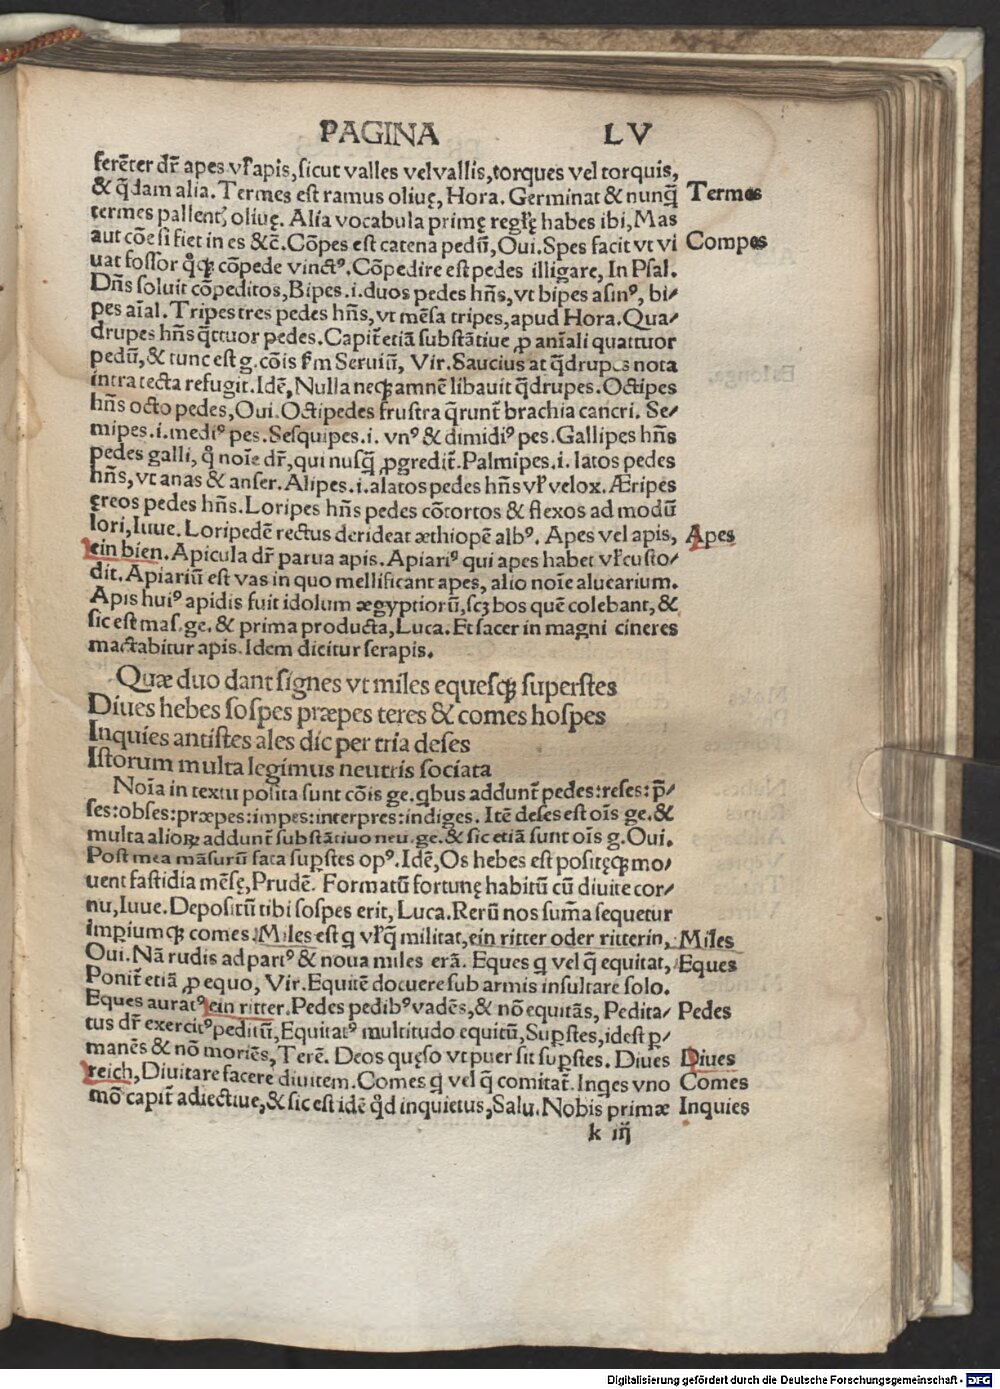 PAGINA LV
ferēter dr̄ apes vl̓ apis, sicut valles vel vallis, torques vel torquis,
& q̄dam alia. Termes est ramus oliuę, Hora. Germinat & nunq̄ Termes
termes pallent᷑ oliuę. Alia vocabula primę regl̓ę habes ibi, Mas
aut cōe si fiet in es &c̄. Cōpes est catena pedū, Oui. Spes facit vt vi Compes
uat fossor q̊qꝫ cōpede vinctꝰ. Cōpedire est pedes illigare, In Psal.
Dn̄s soluit cōpeditos, Bipes .i. duos pedes hn̄s, vt bipes asinꝰ, bi/
pes aīal. Tripes tres pedes hn̄s, vt mēsa tripes, apud Hora. Qua/
drupes hn̄s q̄ttuor pedes. Capit᷑ etiā substātiue ꝓ anīali quattuor
pedū, & tunc est g. cōis s̄m Seruiū, Vir. Saucius at q̄drupes nota
intra tecta refugit. Idē, Nulla neqꝫ amnē libauit q̄drupes. Octipes
hn̄s octo pedes, Oui. Octipedes frustra q̄runt᷑ brachia cancri. Se/
mipes .i. mediꝰ pes. Sesquipes .i. vnꝰ & dimidiꝰ pes. Gallipes hn̄s
pedes galli, q̊ noīe dr̄, qui nusq̄ ꝓgredit᷑. Palmipes .i. latos pedes
hn̄s, vt anas & anser. Alipes .i. alatos pedes hn̄s vl̓ velox. Æripes
ęreos pedes hn̄s. Loripes hn̄s pedes cōtortos & flexos ad modū
lori, Iuue. Loripedē rectus derideat æthiopē albꝰ. Apes vel apis, Apes
ein bien. Apicula dr̄ parua apis. Apiariꝰ qui apes habet vl̓ custo/
dit. Apiariū est vas in quo mellificant apes, alio noīe aluearium.
Apis huiꝰ apidis fuit idolum ægyptiorū, scꝫ bos quē colebant, &
sic est mas. ge. & prima producta, Luca. Et sacer in magni cineres
mactabitur apis. Idem dicitur serapis.
Quæ duo dant signes vt miles equesqꝫ superstes
Diues hebes sospes præpes teres & comes hospes
Inquies antistes ales dic per tria deses
Istorum multa legimus neutris sociata
Noīa in textu posita sunt cōis ge. qbus addunt᷑ pedes: reses: p̄/
ses: obses: præpes: impes: interpres: indiges. Itē deses est oīs ge. &
multa alioꝝ addunt᷑ substātiuo neu. ge. & sic etiā sunt oīs g. Oui.
Post mea māsurū fata suꝑstes opꝰ. Idē, Os hebes est positęqꝫ mo/
uent fastidia mēsę, Prudē. Formatū fortunę habitū cū diuite cor/
nu, Iuue. Depositū tibi sospes erit, Luca. Rerū nos sum̄a sequetur
imꝑiumqꝫ comes. Miles est q vl̓ q̄ militat, ein ritter oder ritterin, Miles
Oui. Nā rudis ad partꝰ & noua miles erā. Eques q vel q̄ equitat, Eques
Ponit᷑ etiā ꝓ equo, Vir. Equitē docuere sub armis insultare solo.
Eques auratꝰ ein ritter. Pedes pedibꝰ vadēs, & nō equitās, Pedita/ Pedes
tus dr̄ exercitꝰ peditū, Equitatꝰ multitudo equitū, Suꝑstes, idest ꝑ/
manēs & nō moriēs, Terē. Deos quęso vt puer sit suꝑstes. Diues Diues
reich, Diuitare facere diuitem. Comes q vel q̄ comitat᷑. Inqes vno Comes
mō capit᷑ adiectiue, & sic est idē q̊d inquietus, Salu. Nobis primæ Inquies
k iij
Digitalisierung gefördert durch die Deutsche Forschungsgemeinschaft - DFG